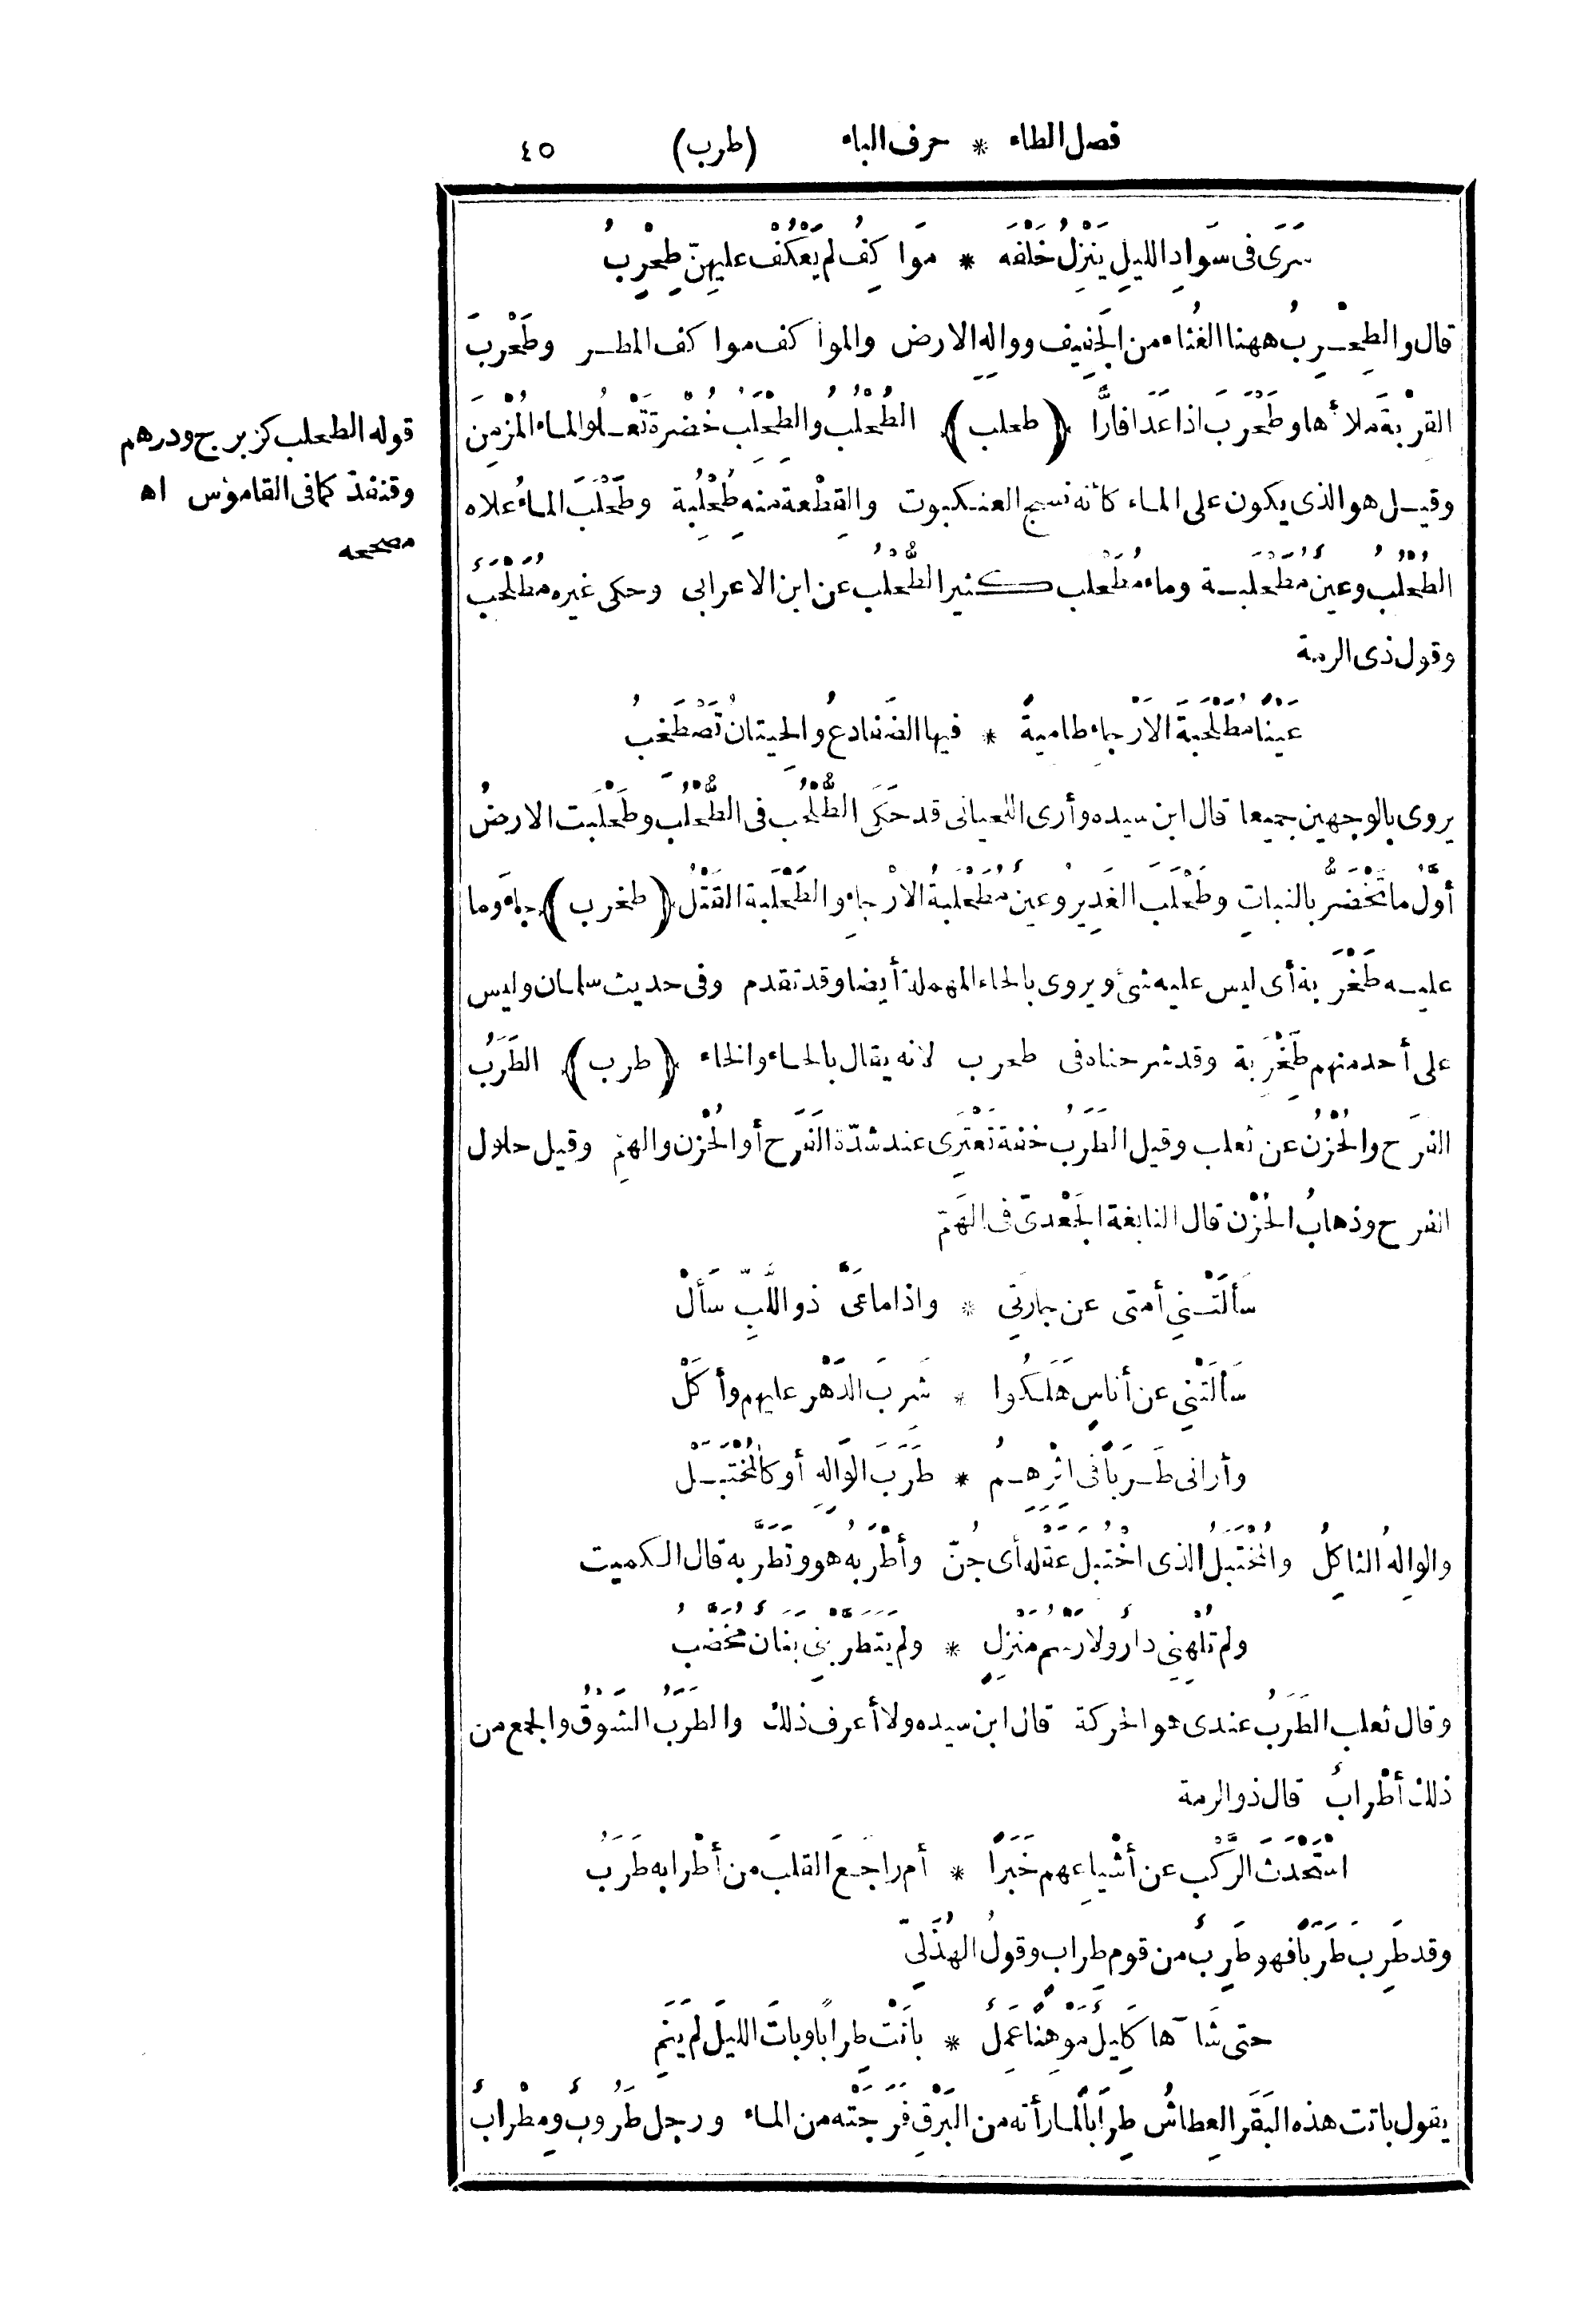 فصل الطاء * حرف الباء (طرب) ٤٥
سَرَى فى سَوادِ الليلِ يَنْزِلُ خَلْفَه * مَوا كِفُ لم يَعْكُفْ عليهِنّ طِحْرِبُ
قال والطِحْرِبُ ههنا الغُثاء من الجَفِيف ووالِهِ الارض والموا كف موا كف المطر وطَحْرَبَ
القِرْبةَ ملأها وطَحْرَبَ اذا عَدَا فارًّا ﴿طحلب﴾ الطُحْلُبُ والطِحْلِبُ خُضْرة تَعْلُو الماء المُزْمِنَ
وقيل هو الذى يكون على الماء كأنه نسج العنكبوت والقِطْعة منه طُحْلُبة وطَحْلَبَ الماءُ علاه
الطُحْلُبُ وعين مُطَحْلَبة وماء مُطَحْلب كثير الطُّحْلُب عن ابن الاعرابى وحكى غيره مُطَلْحَبٌ
وقول ذى الرمة
عَيْنًا مُطَلْحَبةَ الاَرْجاءِ طاميةً * فيها الضَفادعُ والحِيتانُ تَصْطَخِبُ
يروى بالوجهين جميعا قال ابن سيده وأرى اللحيانى قد حَكَى الطُّلْحُب فى الطُّحْلُب وطَحْلَبَت الارضُ
أوّلُ ما تَخْضَرُّ بالنبات وطَحْلَبَ الغَدِيرُ وعينٌ مُطَحْلَبةُ الاَرْجاءِ والطَحْلَبةُ القَتْلُ ﴿طخرب﴾ جاء وما
عليه طَخْرَبة أى ليس عليه شئ ويروى بالحاء المهملة أيضا وقد تقدم وفى حديث سلمان وليس
على أحد منهم طَخْرَبة وقد شرحناه فى طحرب لانه يقال بالحاء والخاء ﴿طرب﴾ الطَرَبُ
الفَرَح والحُزْنُ عن ثعلب وقيل الطَرَبُ خفة تَعْتَرِى عند شدّة الفَرَح أو الحُزْن والهمّ وقيل حلول
الفرح وذهابُ الحُزْن قال النابغة الجَعْدىّ فى الهَمّ
سَأَلَتْنِي أمتى عن جارتِي * واذا ما عَىَّ ذو اللُّبِّ سَأَلْ
سَأَلَتْنِي عن أناسٍ هَلَكُوا * شَرِبَ الدَهْر عليهم وأ كَلْ
وأرانى طَرِبًا فى اِثْرِهِمُ * طَرَبَ الوالِهِ أو كالمُخْتَبَلْ
والوالِهُ الثاكِلُ والمُخْتَبَلُ الذى اخْتُبِلَ عَقْلُه أى جُنّ وأَطْرَبُه هو وتَطَرَّبه قال الكميت
ولم تُلْهِنِي دارٌ ولا رَسْمُ مَنْزِلٍ * ولم يَتَطَرَّبْنِي بَنانٌ مُخَضَّبُ
وقال ثعلب الطَرَبُ عندى هو الحركة قال ابن سيده ولا أعرف ذلك والطَرَبُ الشَوْقُ والجمع من
ذلك أطْرابٌ قال ذو الرمة
اسْتَحْدَثَ الرَّكْب عن أشْياعِهم خَبَرًا * أم راجَعَ القلبَ من أطْرابه طَرَبُ
وقد طَرِبَ طَرَبًا فهو طَرِبٌ من قوم طِراب وقولُ الهُذَلىّ
حتى شَآها كَلِيلٌ مَوْهِنًا عَمِلٌ * بانَتْ طِرابًا وباتَ الليلَ لم يَنَمِ
يقول باتت هذه البَقَر العِطاشُ طِرابًا لما رأته من البَرْقِ فَرَجَتْه من الماء ورجل طَرُوبٌ ومِطْرابٌ
قوله الطحلب كزبرج ودرهم
وقنفذ كما فى القاموس اه
مصححه